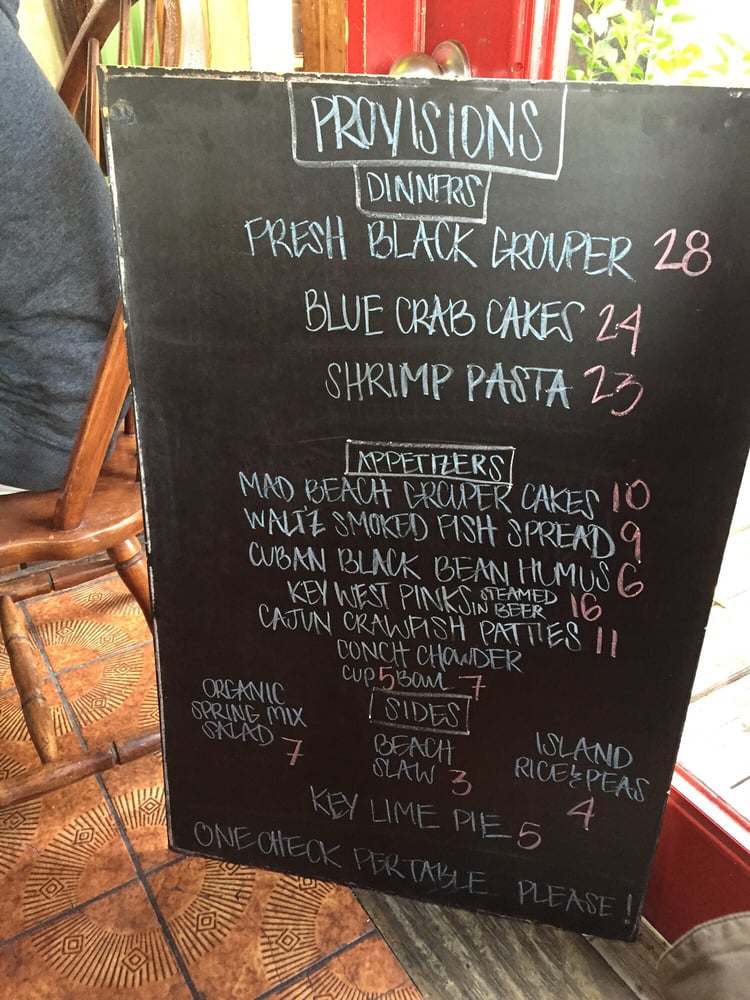 PROVISIONS
DINNERS
FRESH BLACK GROUPER 28
BLUE CRAB CAKES 24
SHRIMP PASTA 23
APPETIZERS
MAD BEACH GROUPER CAKES 10
WALT'Z SMOKED FISH SPREAD 9
CUBAN BLACK BEAN HUMUS 6
KEY WEST PINKS STEAMED IN BEER 16
CAJUN CRAWFISH PATTIES 11
CONCH CHOWDER
CUP 5 BOWL 7
SIDES
ORGANIC
SPRING MIX
SALAD 7
BEACH
SLAW 3
ISLAND
RICE & PEAS
4
KEY LIME PIE 5
ONE CHECK PER TABLE PLEASE!